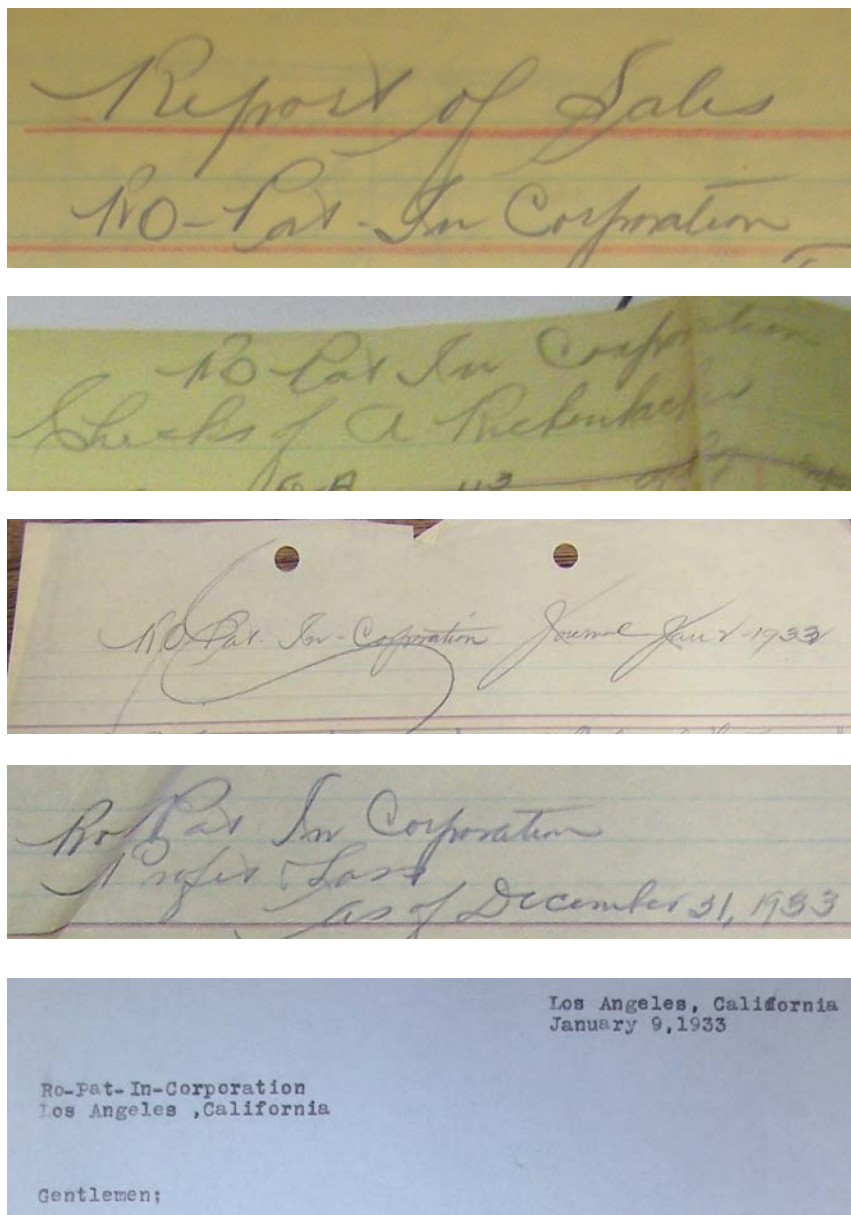 Report of Sales
RO-Pat-In Corporation
RO-Pat In Corporation
Checks of A Rickenbacker
RO-Pat-In-Corporation Journal Jan 2-1933
Ro Pat In Corporation
Profit & Loss
as of December 31, 1933
Los Angeles, California
January 9,1933
Ro-Pat-In-Corporation
Los Angeles ,California
Gentlemen;